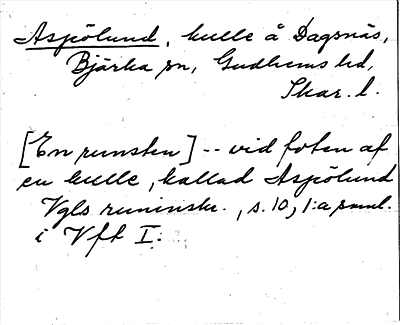 Aspölund, kulle å Dagsnäs,
Bjärka sn, Gudhems hd,
Skar. l.
[En runsten] -- vid foten af
en kulle, kallad Aspölund
Vgls runinskr., s. 10, 1:a saml.
i Vft I.